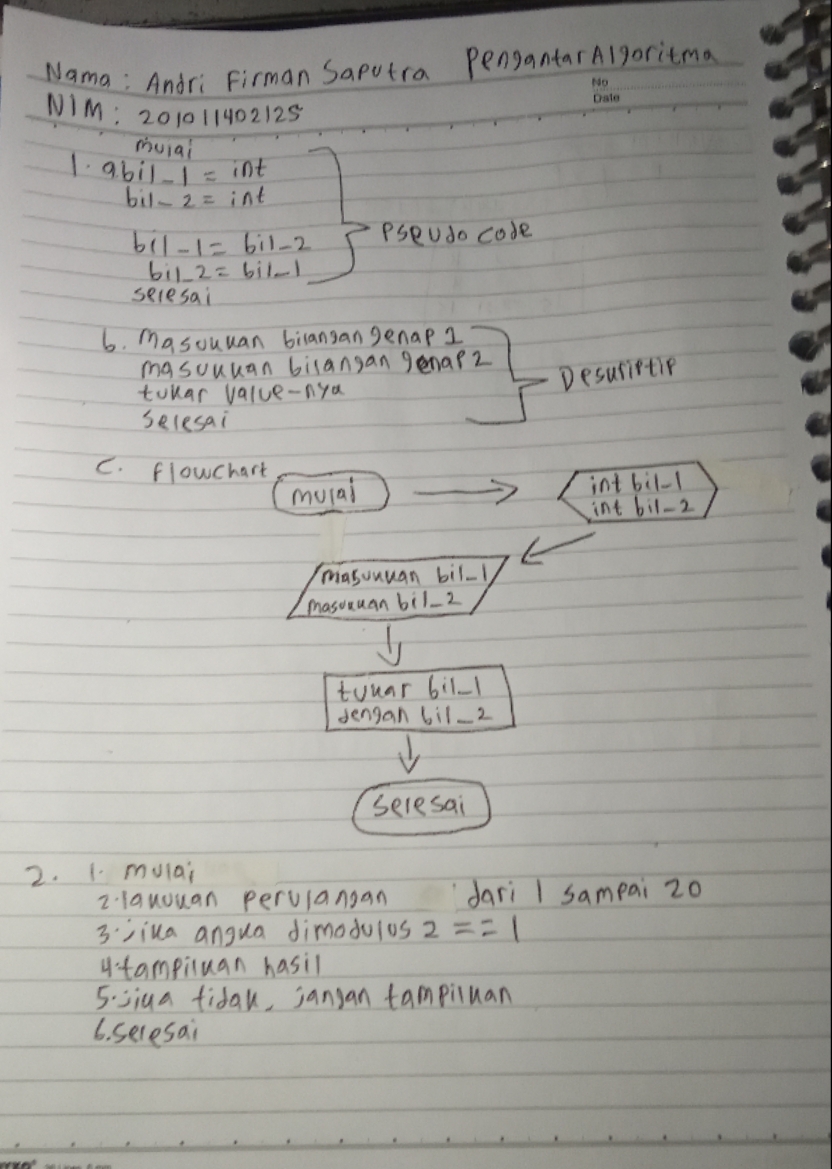 Nama : Andri Firman Saputra Pengantar Algoritma
No
Date
NIM : 201011402125
mulai
1. a bil_1 = int
bil_2 = int
bil_1 = bil_2
bil_2 = bil_1
selesai
Pseudo code
b. Masukkan bilangan genap 1
masukkan bilangan genap 2
tukar value-nya
selesai
Deskriptip
C. Flowchart
mulai
int bil_1
int bil_2
masukkan bil_1
masukkan bil_2
tukar bil_1
dengan bil_2
selesai
2. 1. mulai
2. lakukan perulangan dari 1 sampai 20
3. jika angka dimodulus 2 == 1
4. tampilkan hasil
5. jika tidak, jangan tampilkan
6. selesai